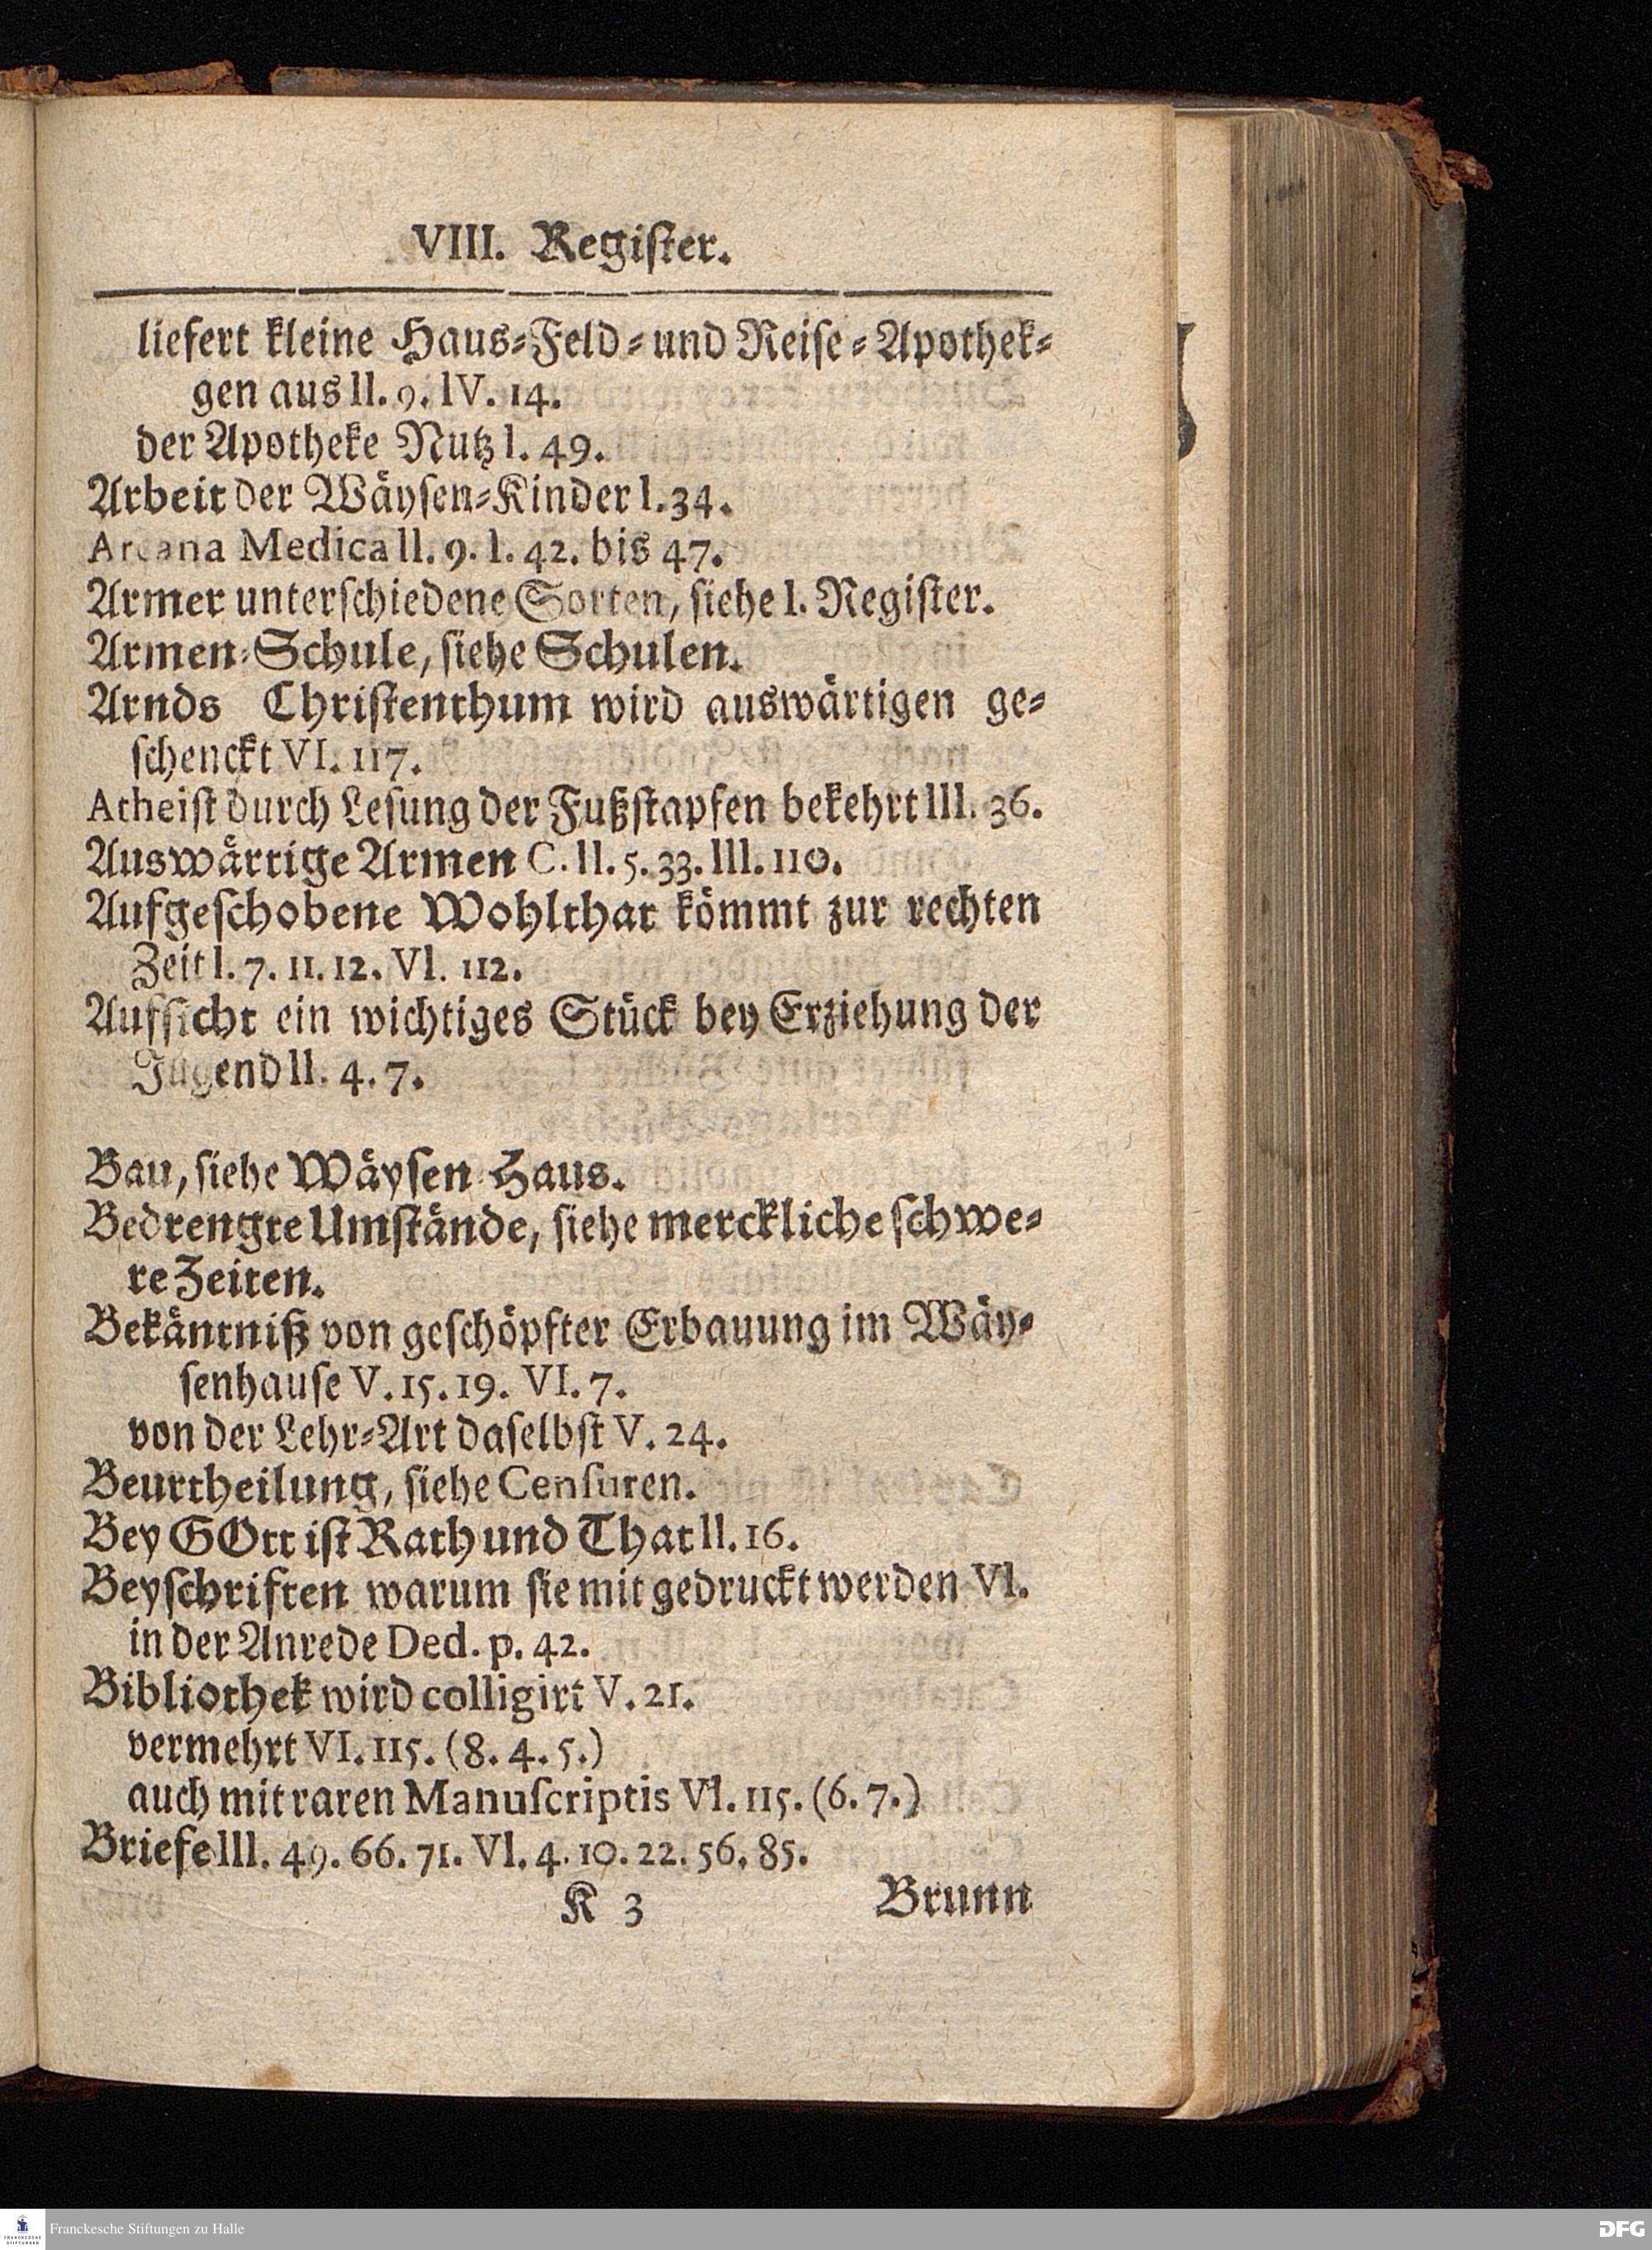 VIII. Regiſter.
liefert kleine Haus-Feld-und Reiſe-Apothek-
gen aus II. 9. IV. 14.
der Apotheke Nutz I. 49.
Arbeit der Wäyſen-Kinder I. 34.
Arcana Medica II. 9. I. 42. bis 47.
Armer unterſchiedene Sorten, ſiehe I. Regiſter.
Armen-Schule, ſiehe Schulen.
Arnds Chriſtenthum wird auswärtigen ge-
ſchenckt VI. 117.
Atheiſt durch Leſung der Fußſtapfen bekehrt III. 36.
Auswärtige Armen C. II. 5. 33. III. 110.
Aufgeſchobene Wohlthat kömmt zur rechten
Zeit I. 7. 11. 12. VI. 112.
Aufſicht ein wichtiges Stück bey Erziehung der
Jugend II. 4. 7.
Bau, ſiehe Wäyſen-Haus.
Bedrengte Umſtände, ſiehe merckliche ſchwe-
re Zeiten.
Bekäntniß von geſchöpfter Erbauung im Wäy-
ſenhauſe V. 15. 19. VI. 7.
von der Lehr-Art daſelbſt V. 24.
Beurtheilung, ſiehe Cenſuren.
Bey GOtt iſt Rath und That II. 16.
Beyſchriften warum ſie mit gedruckt werden VI.
in der Anrede Ded. p. 42.
Bibliothek wird colligirt V. 21.
vermehrt VI. 115. (8. 4. 5.)
auch mit raren Manuſcriptis VI. 115. (6. 7.)
Briefe III. 49. 66. 71. VI. 4. 10. 22. 56. 85.
K 3 Brunn
Franckesche Stiftungen zu Halle
DFG